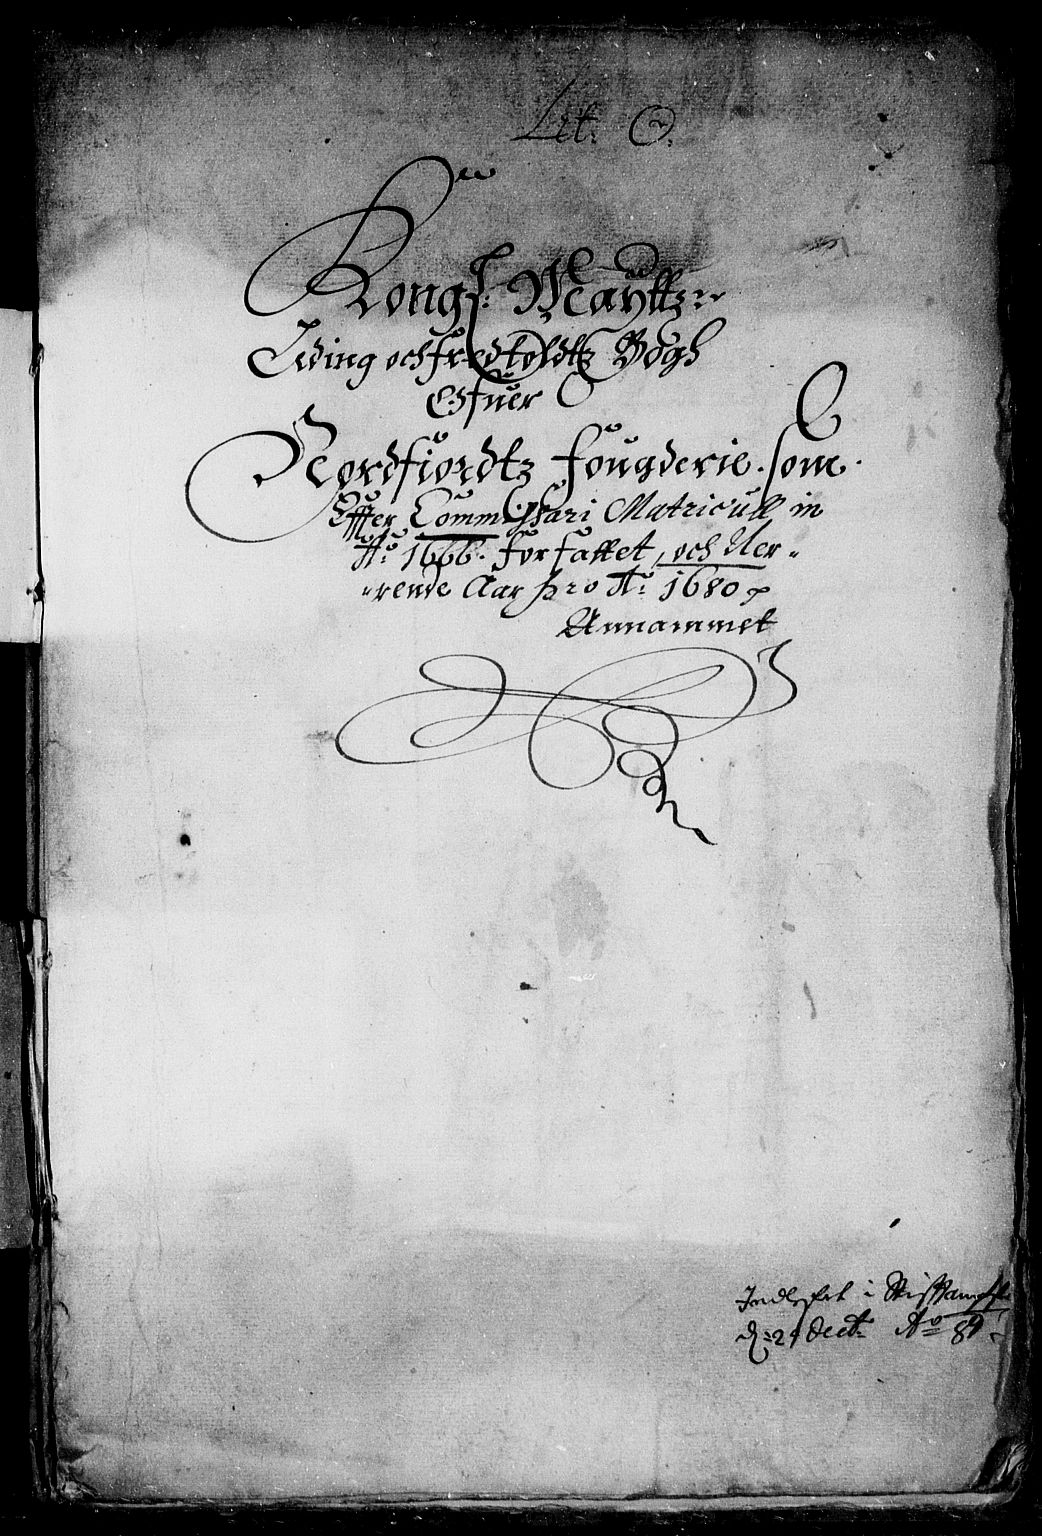 Lit: O.
Kongl: Maÿttz
Tding och fredtoldtz Bogh
Ofuer
Nordfiordtz fougderie. som
Effter Commissari Matricull in
Ao: 1666. forfattet, och Uer-
-rende Aar pro Ao: 1680
Annammet
Indlefret i Stiftampt
d: 21 Oct: Ao 81